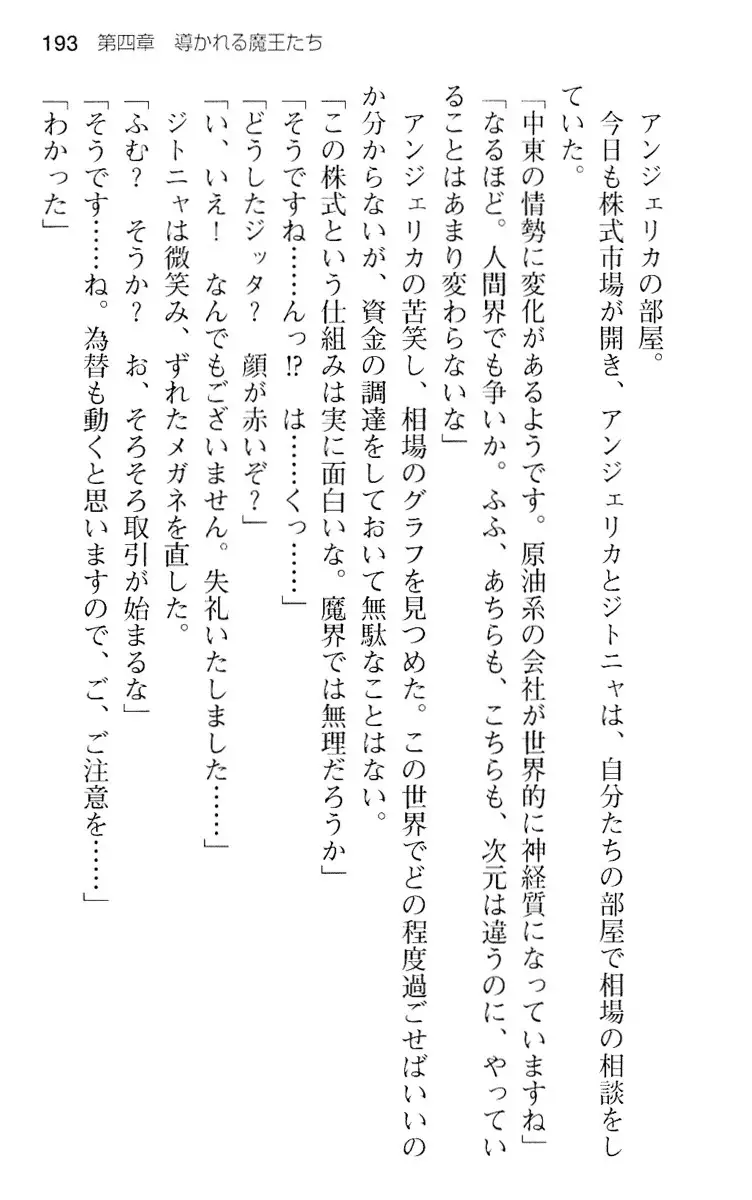 193 第四章 導かれる魔王たち
アンジェリカの部屋。
今日も株式市場が開き、アンジェリカとジトニャは、自分たちの部屋で相場の相談をし
ていた。
「中東の情勢に変化があるようです。原油系の会社が世界的に神経質になっていますね」
「なるほど。人間界でも争いか。ふふ、あちらも、こちらも、次元は違うのに、やってい
ることはあまり変わらないな」
アンジェリカの苦笑し、相場のグラフを見つめた。この世界でどの程度過ごせばいいの
か分からないが、資金の調達をしておいて無駄なことはない。
「この株式という仕組みは実に面白いな。魔界では無理だろうか」
「そうですね……んっ!? は……くっ……」
「どうしたジッタ? 顔が赤いぞ?」
「い、いえ! なんでもございません。失礼いたしました……」
ジトニャは微笑み、ずれたメガネを直した。
「ふむ? そうか? お、そろそろ取引が始まるな」
「そうです……ね。為替も動くと思いますので、ご、ご注意を……」
「わかった」